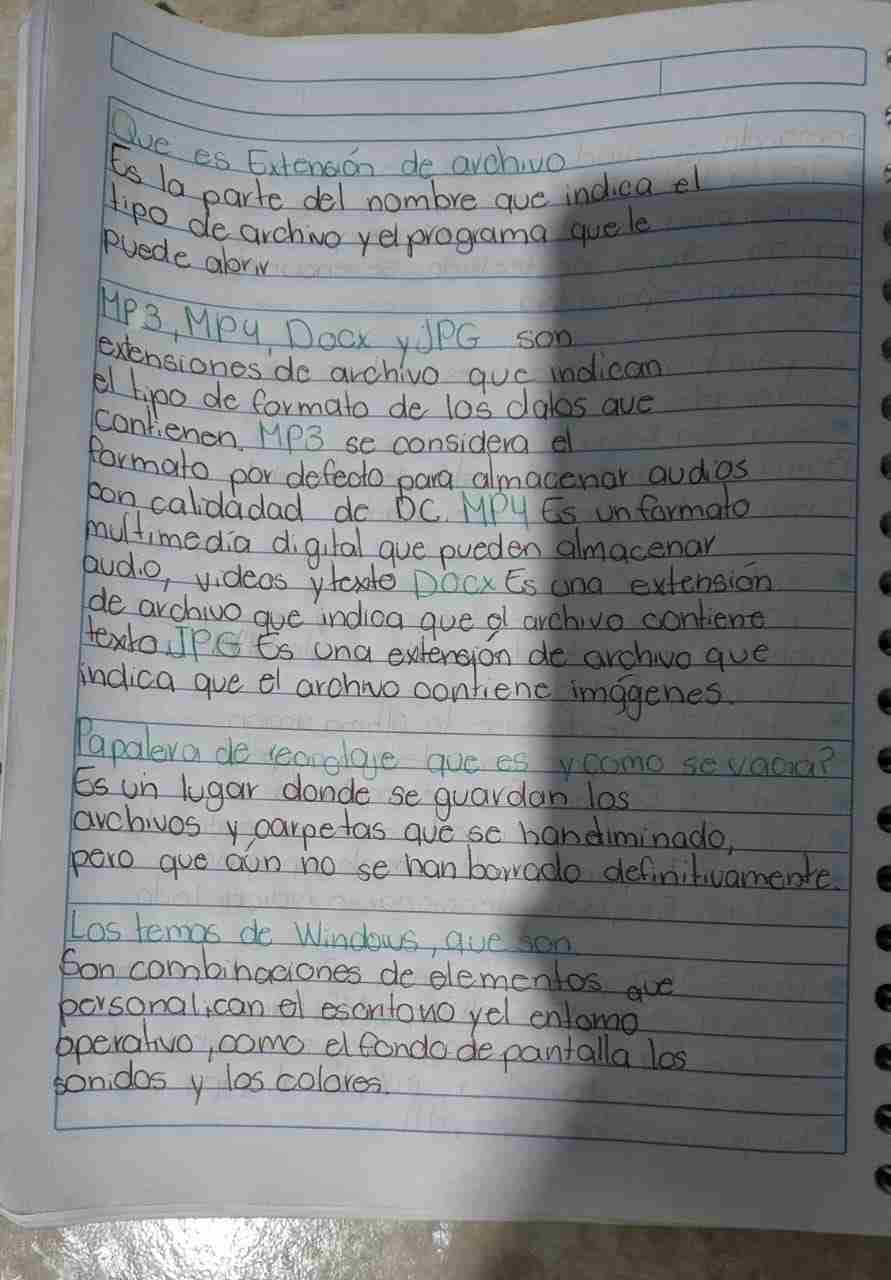 Que es Extensión de archivo
Es la parte del nombre que indica el
tipo de archivo y el programa que le
puede abrir
MP3, MP4, Docx y JPG son
extensiones de archivo que indican
el tipo de formato de los datos que
contienen. MP3 se considera el
formato por defecto para almacenar audios
con calidadad de DC. MP4 Es un formato
multimedia digital que pueden almacenar
audio, videos y texto DOCX Es una extensión
de archivo que indica que el archivo contiene
texto JPG Es una extensión de archivo que
indica que el archivo contiene imágenes.
Papalera de reciclaje que es y como se vacia?
Es un lugar donde se guardan los
archivos y carpetas que se han eliminado,
pero que aún no se han borrado definitivamente.
Los temas de Windows, que son
Son combinaciones de elementos que
personalican el escritorio y el entorno
operativo, como el fondo de pantalla los
sonidos y los colores.